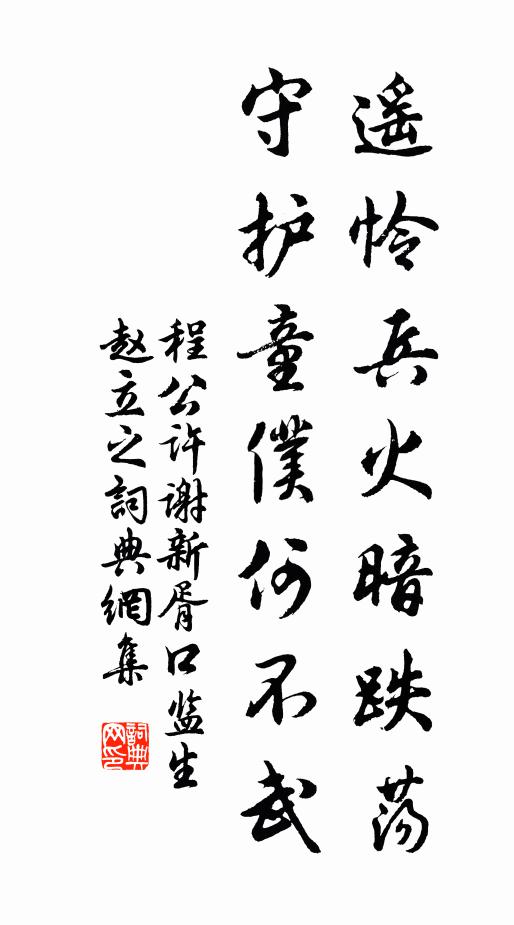 遥怜兵火暗跌荡
守护童僕何不武
程公许谢新胥口监生
赵立之詞典網集
詞典
网印